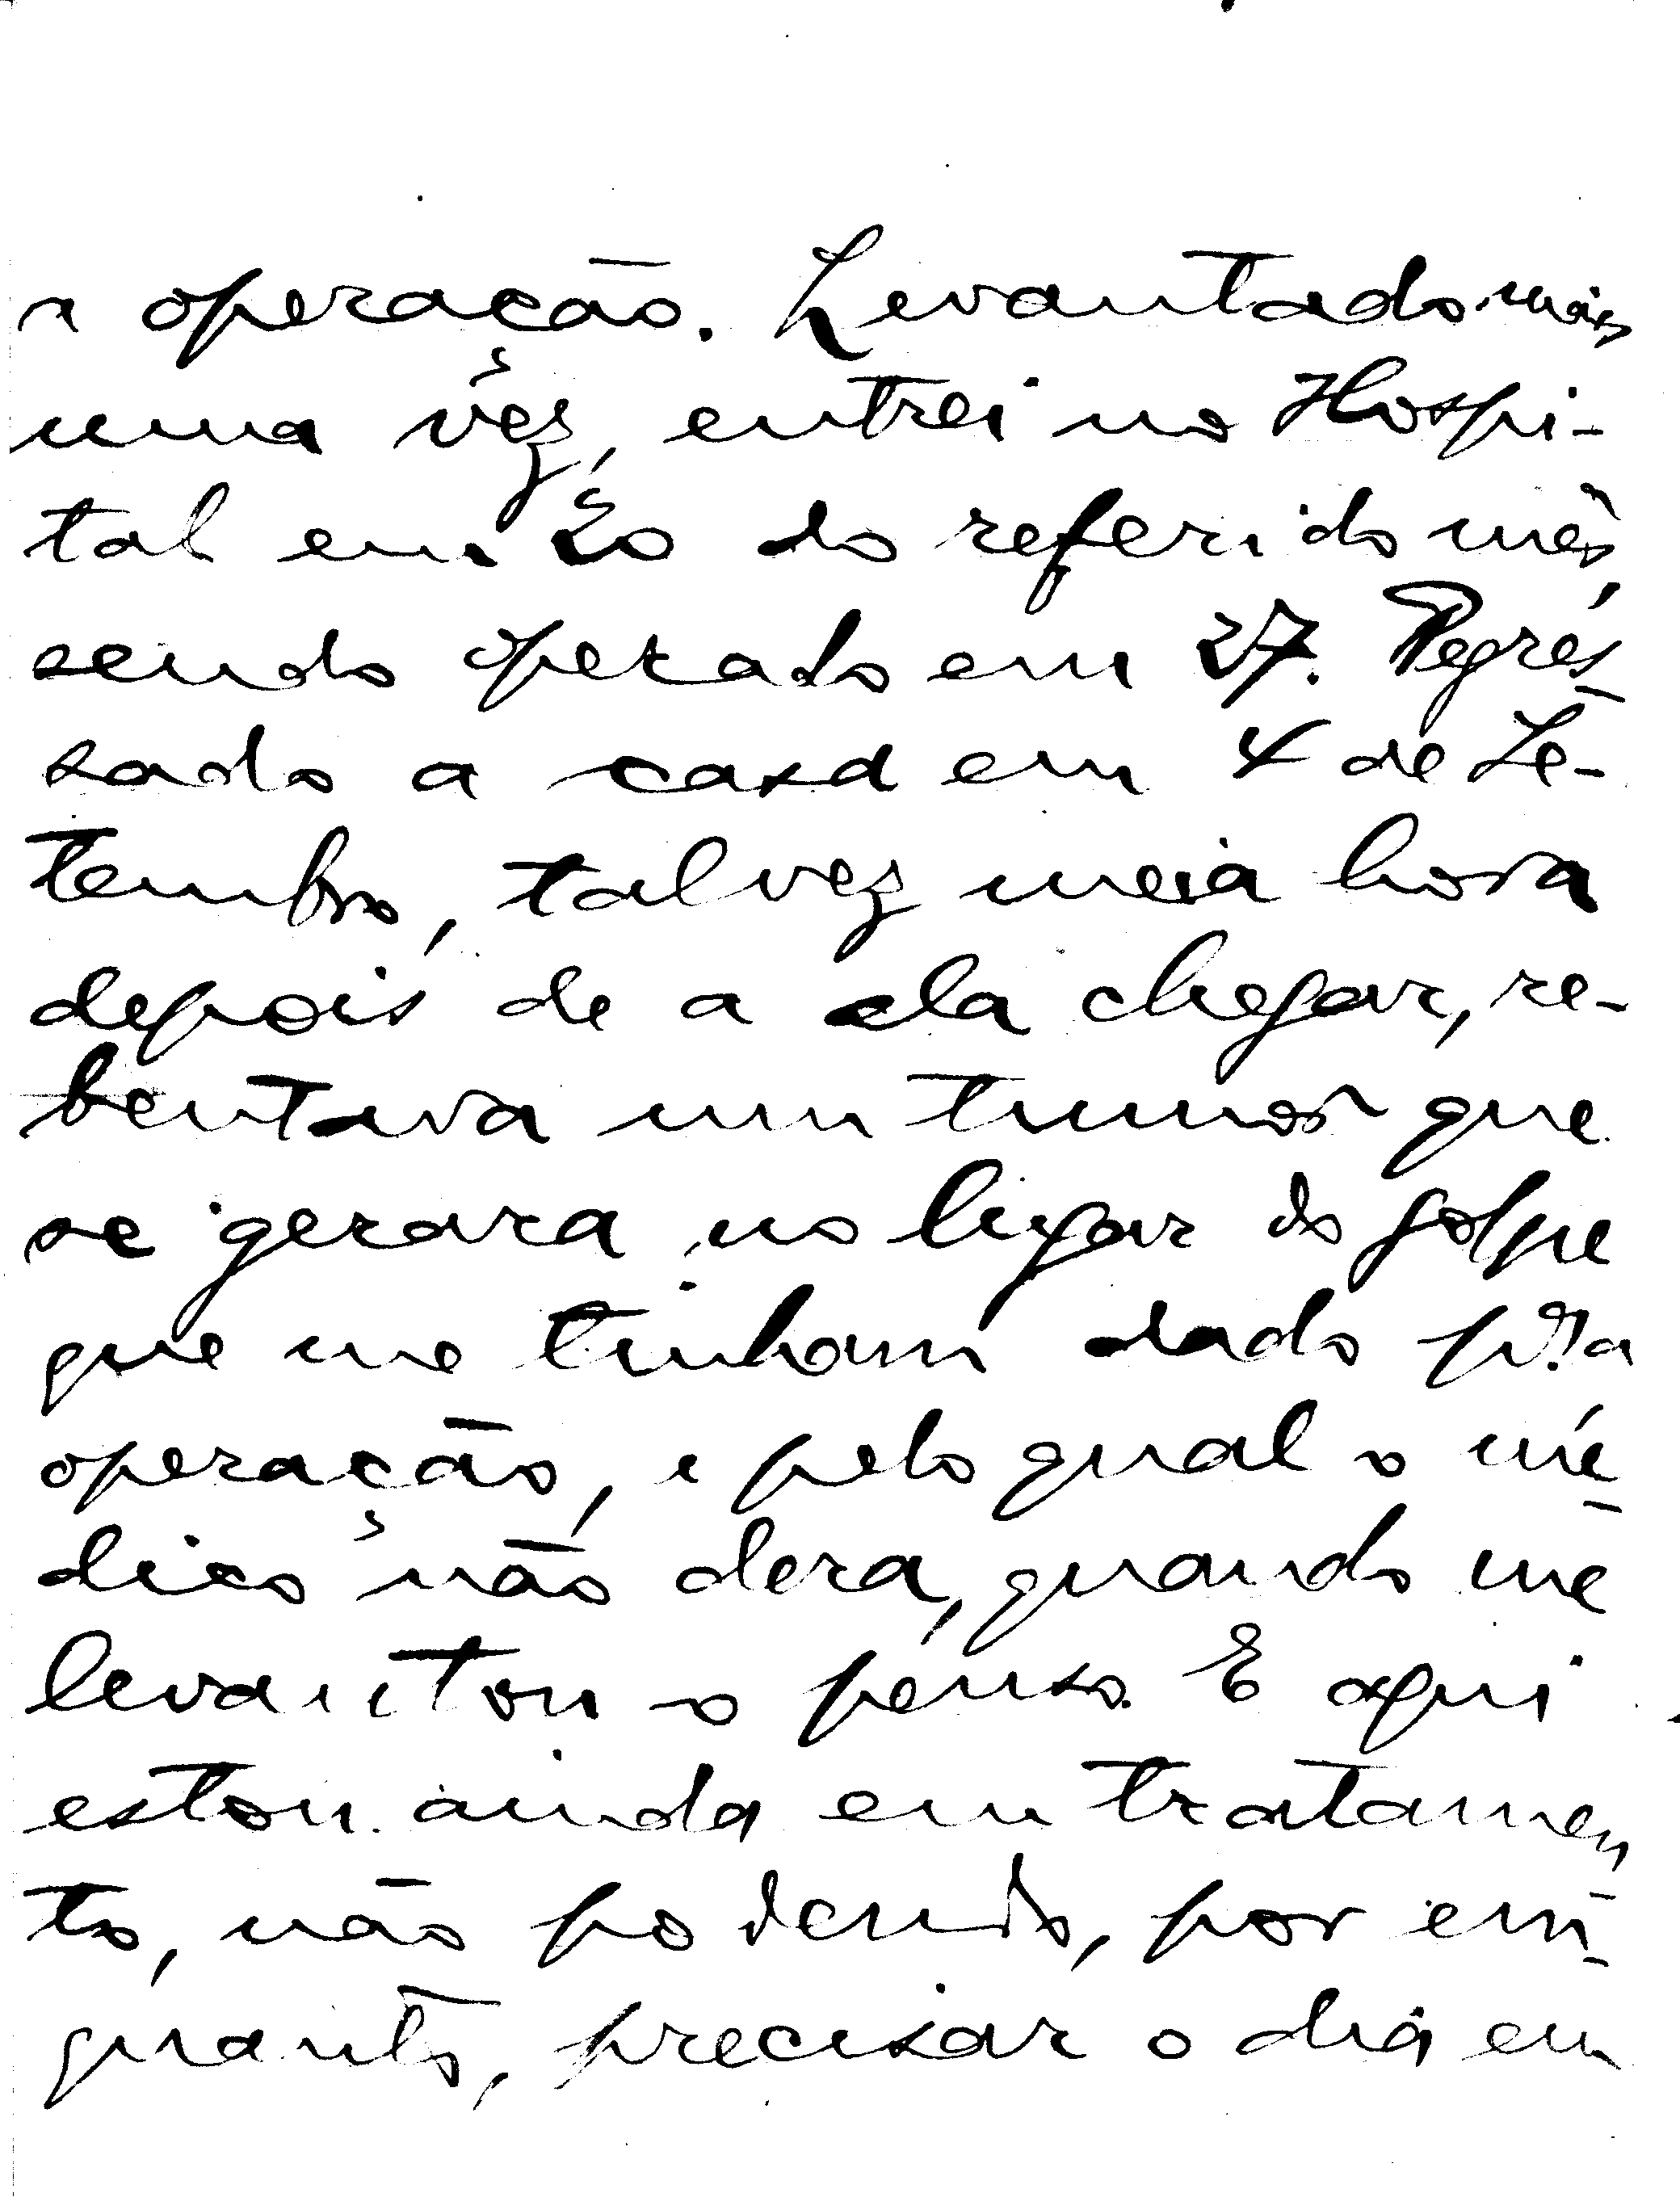 a operação. Levantado mais
uma vêz, entrei no Hospi-
tal em 20 do referido mês,
sendo operado em 27. Regrês-
sado a casa em 4 de Se-
tembro, talvez meia hora
depois de a ela chegar, re-
bentava um tumor que
se gerara no lugar do golpe
que me tinham dado p.ª a
operação, e pelo qual o mé-
dico não dera, quando me
levantou o penso. E aqui
estou ainda em tratamen
to, não podendo, por en-
quanto, precisar o dia em